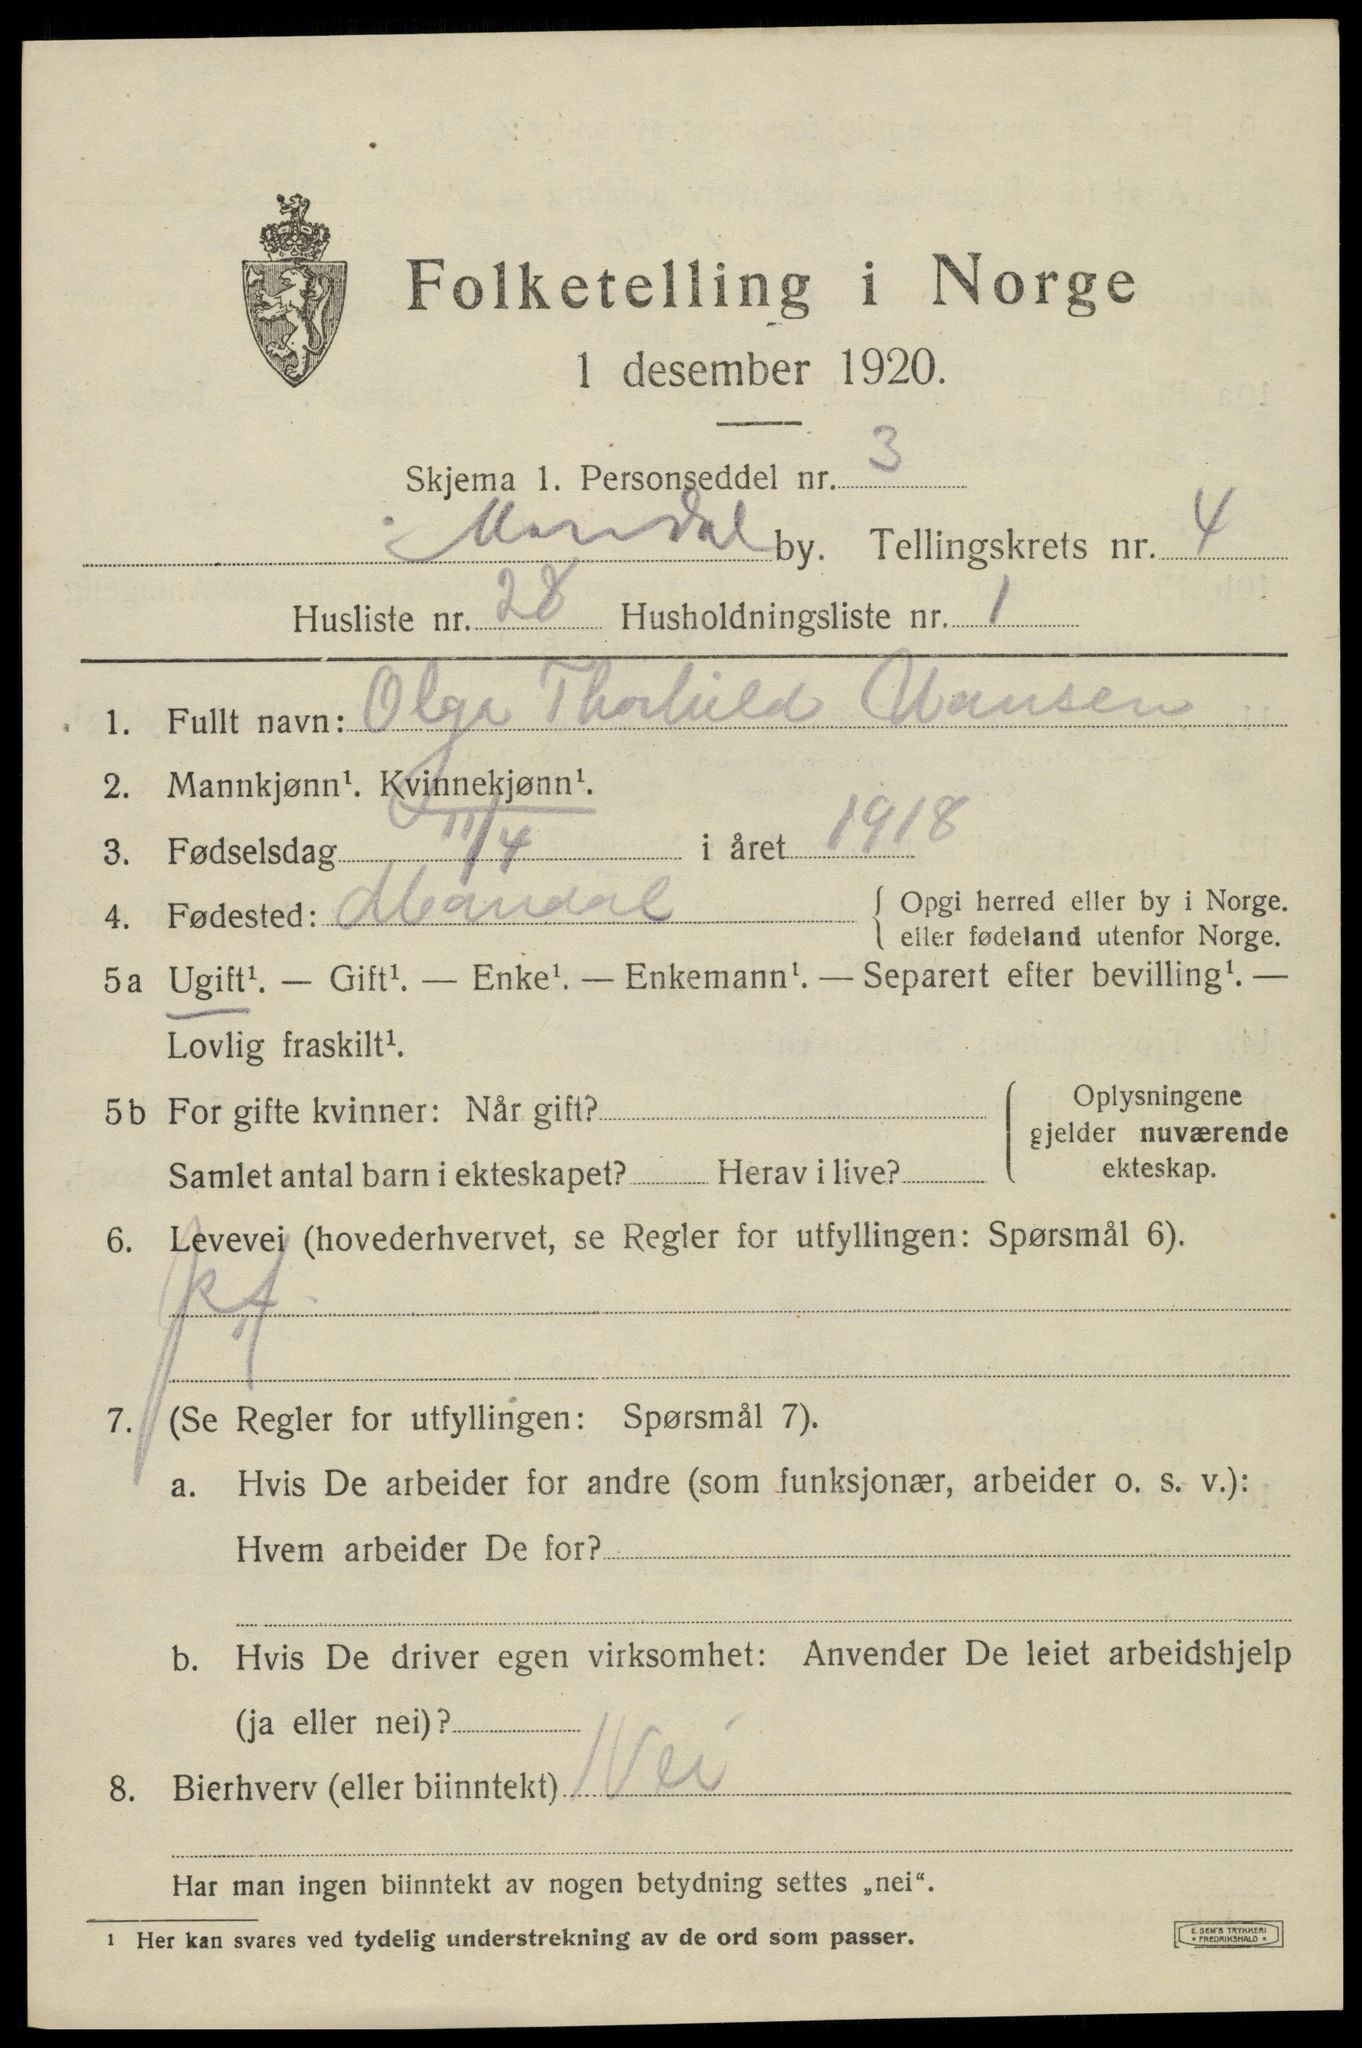 Folketelling i Norge
1 desember 1920.
Skjema 1. Personseddel nr. 3
Mandal by. Tellingskrets nr. 4
Husliste nr. 28 Husholdningsliste nr. 1
1. Fullt navn: Olga Thorhild Hansen
2. Mannkjønn¹. Kvinnekjønn¹.
3. Fødselsdag 11/4 i året 1918
4. Fødested: Mandal { Opgi herred eller by i Norge.
eller fødeland utenfor Norge.
5a Ugift¹. — Gift¹. — Enke¹. — Enkemann¹. — Separert efter bevilling¹. —
Lovlig fraskilt¹.
5b For gifte kvinner: Når gift? Oplysningene
gjelder nuværende
Samlet antal barn i ekteskapet? Herav i live? ekteskap.
6. Levevei (hovederhvervet, se Regler for utfyllingen: Spørsmål 6).
7. (Se Regler for utfyllingen: Spørsmål 7).
a. Hvis De arbeider for andre (som funksjonær, arbeider o. s. v.):
Hvem arbeider De for?
b. Hvis De driver egen virksomhet: Anvender De leiet arbeidshjelp
(ja eller nei)?
8. Bierhverv (eller biinntekt) Nei
Har man ingen biinntekt av nogen betydning settes „nei“.
¹ Her kan svares ved tydelig understrekning av de ord som passer.
E. SEM'S TRYKKERI
* FREDRIKSHALD *